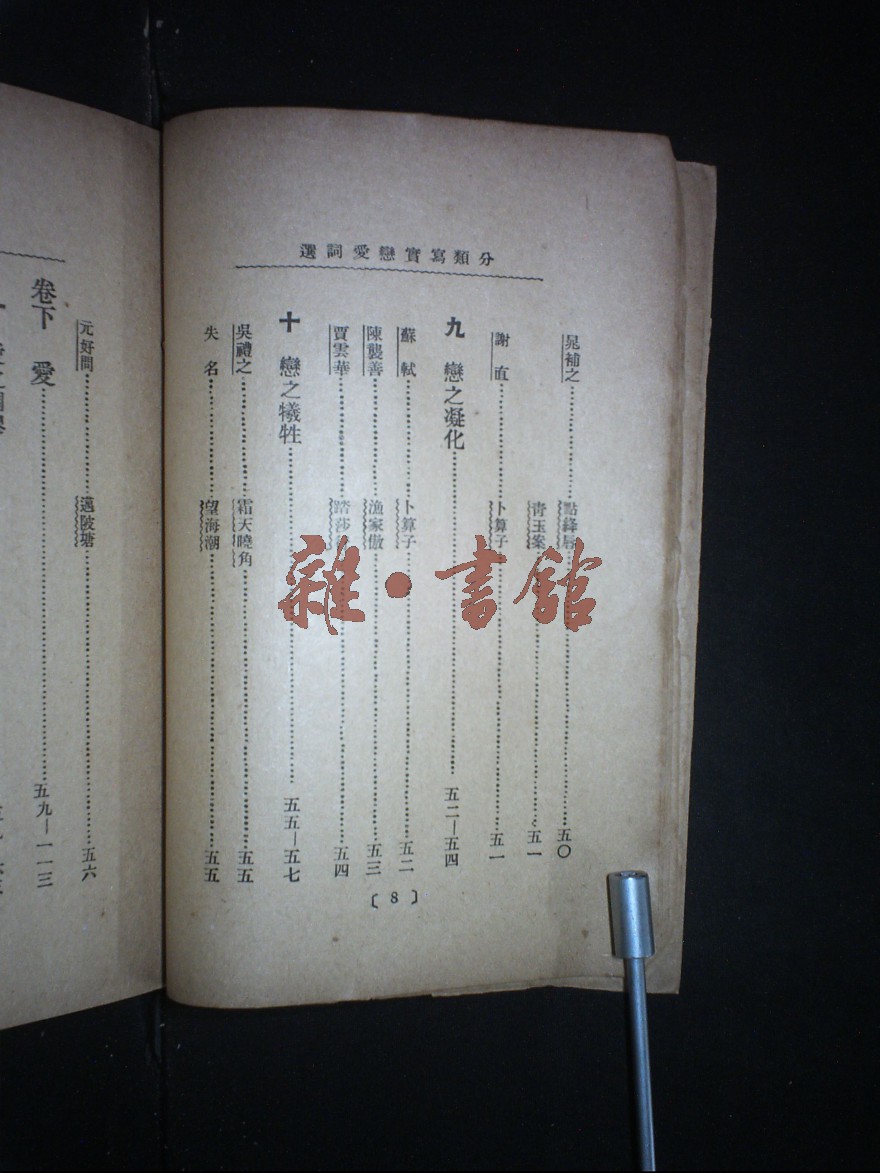 分類寫實戀愛詞選
晁補之 點絳唇 五〇
青玉案 五一
謝直 卜算子 五一
九 戀之凝化 五二—五四
蘇軾 卜算子 五二
陳襲善 漁家傲 五三
賈雲華 踏莎 五四
十 戀之犧牲 五五—五七
吳禮之 霜天曉角 五五
失名 望海潮 五五
〔8〕
元好問 邁陂塘 五六
卷下 愛 五九—一一三
雜·書館